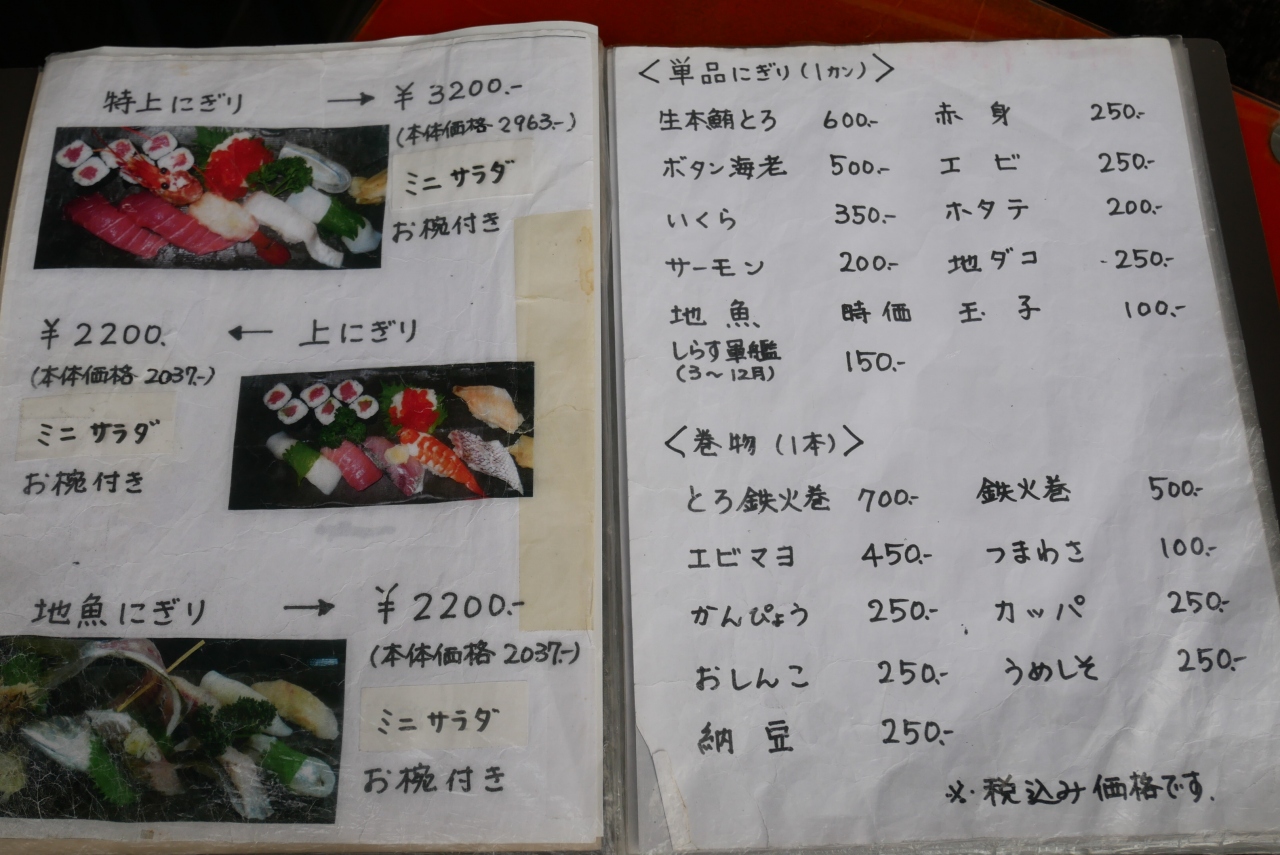 特上にぎり → ¥3200.-
(本体価格 2963.-)
ミニサラダ
お椀付き
¥2200. ← 上にぎり
(本体価格 2037.-)
ミニサラダ
お椀付き
地魚にぎり → ¥2200.-
(本体価格 2037.-)
ミニサラダ
お椀付き
<単品にぎり(1カン)>
生本鮪とろ 600.- 赤身 250.-
ボタン海老 500.- エビ 250.-
いくら 350.- ホタテ 200.-
サーモン 200.- 地ダコ 250.-
地魚 時価 玉子 100.-
しらす軍艦 150.-
(3〜12月)
<巻物(1本)>
とろ鉄火巻 700.- 鉄火巻 500.-
エビマヨ 450.- つまわさ 100.-
かんぴょう 250.- カッパ 250.-
おしんこ 250.- うめしそ 250.-
納豆 250.-
※税込み価格です.